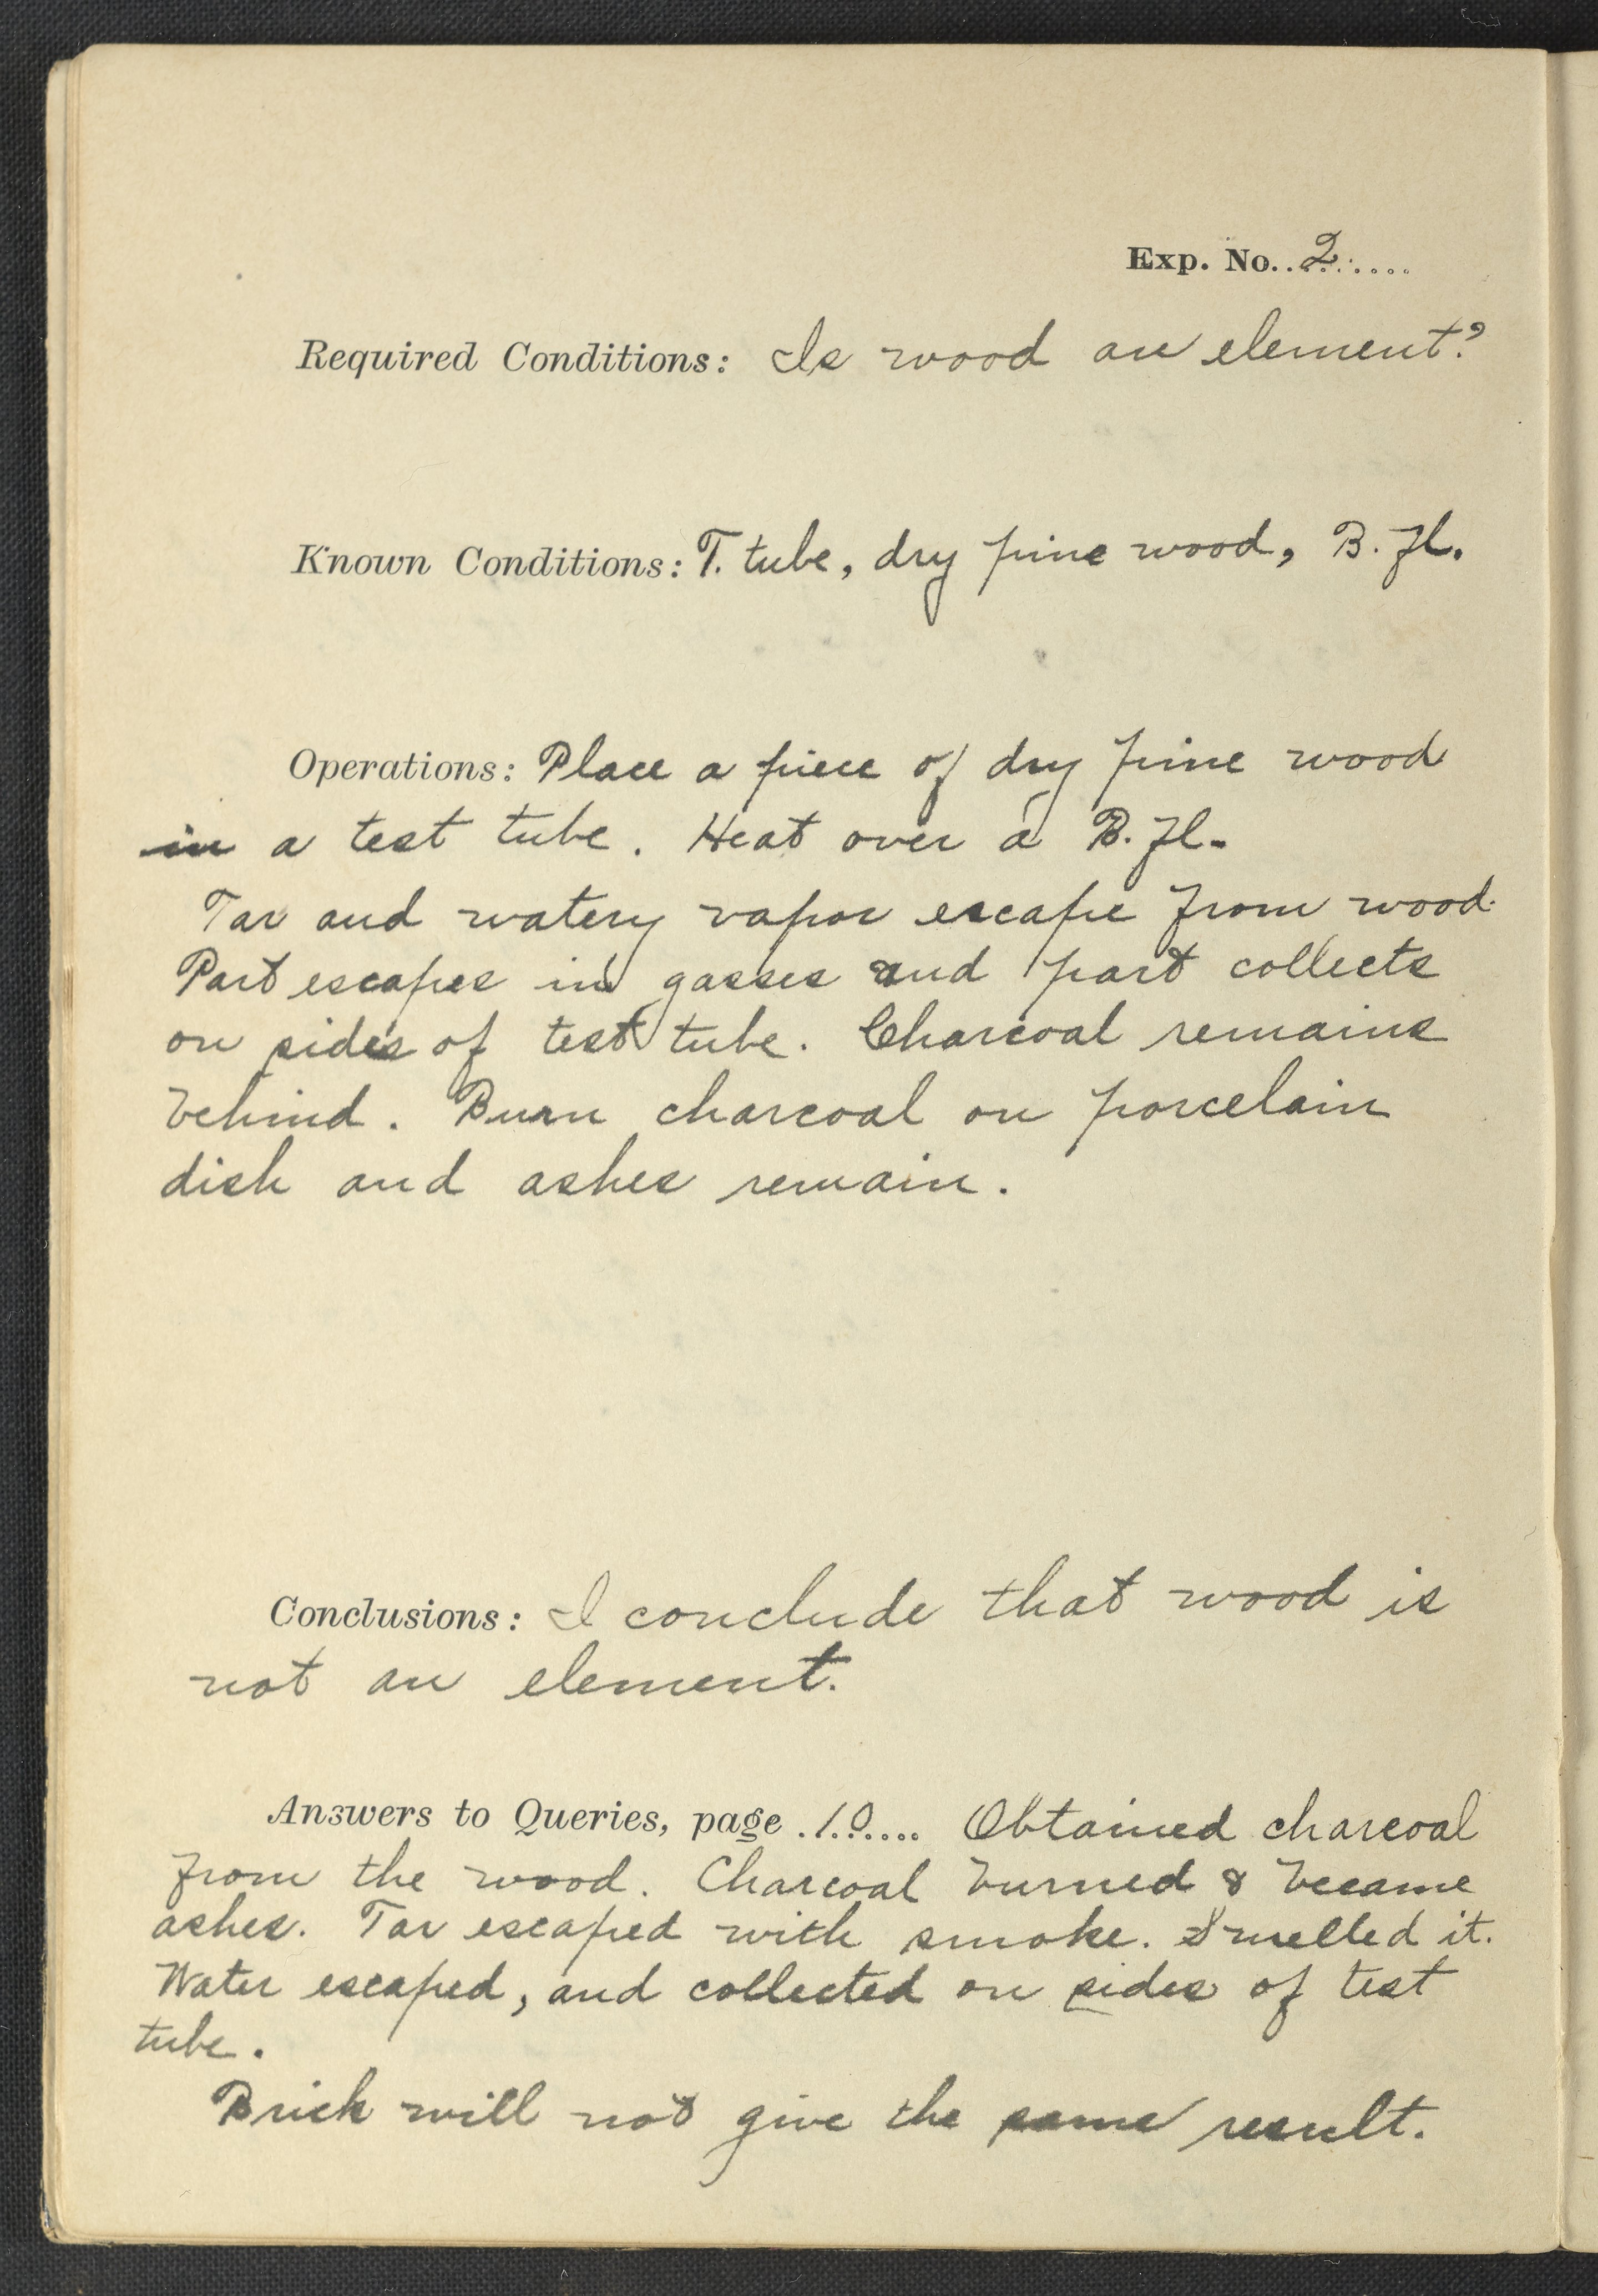 Exp. No. 2
Required Conditions: Is wood an element?
Known Conditions: T. tube, dry pine wood, B. Fl.
Operations: Place a piece of dry pine wood
in a test tube. Heat over a B. Fl.
Tar and watery vapor escape from wood.
Part escapes in gasses and part collects
on sides of test tube. Charcoal remains
behind. Burn charcoal on porcelain
dish and ashes remain.
Conclusions: I conclude that wood is
not an element.
Answers to Queries, page 10 Obtained charcoal
from the wood. Charcoal burned & became
ashes. Tar escaped with smoke. Smelled it.
Water escaped, and collected on sides of test
tube.
Brick will not give the same result.